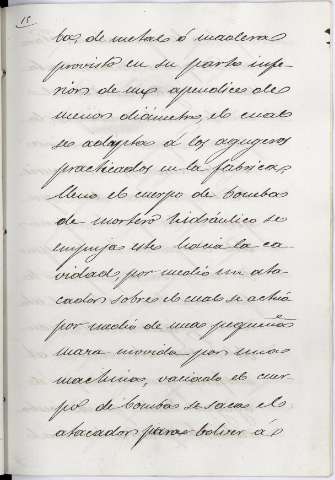 15
ba, de metal ó madera
provisto en su parte infe-
rior de un apendice de
menor diámetro, el cual
se adapta á los agugeros
practicados en la fabrica,
lleno el cuerpo de bomba
de mortero hidráulico se
empuja este hacia la ca-
vidad por medio un ata-
cador sobre el cual se actúa
por medio de una pequeña
maza movida por una
machina, vaciado el cuer-
po de bomba se saca el
atacador para bolver á